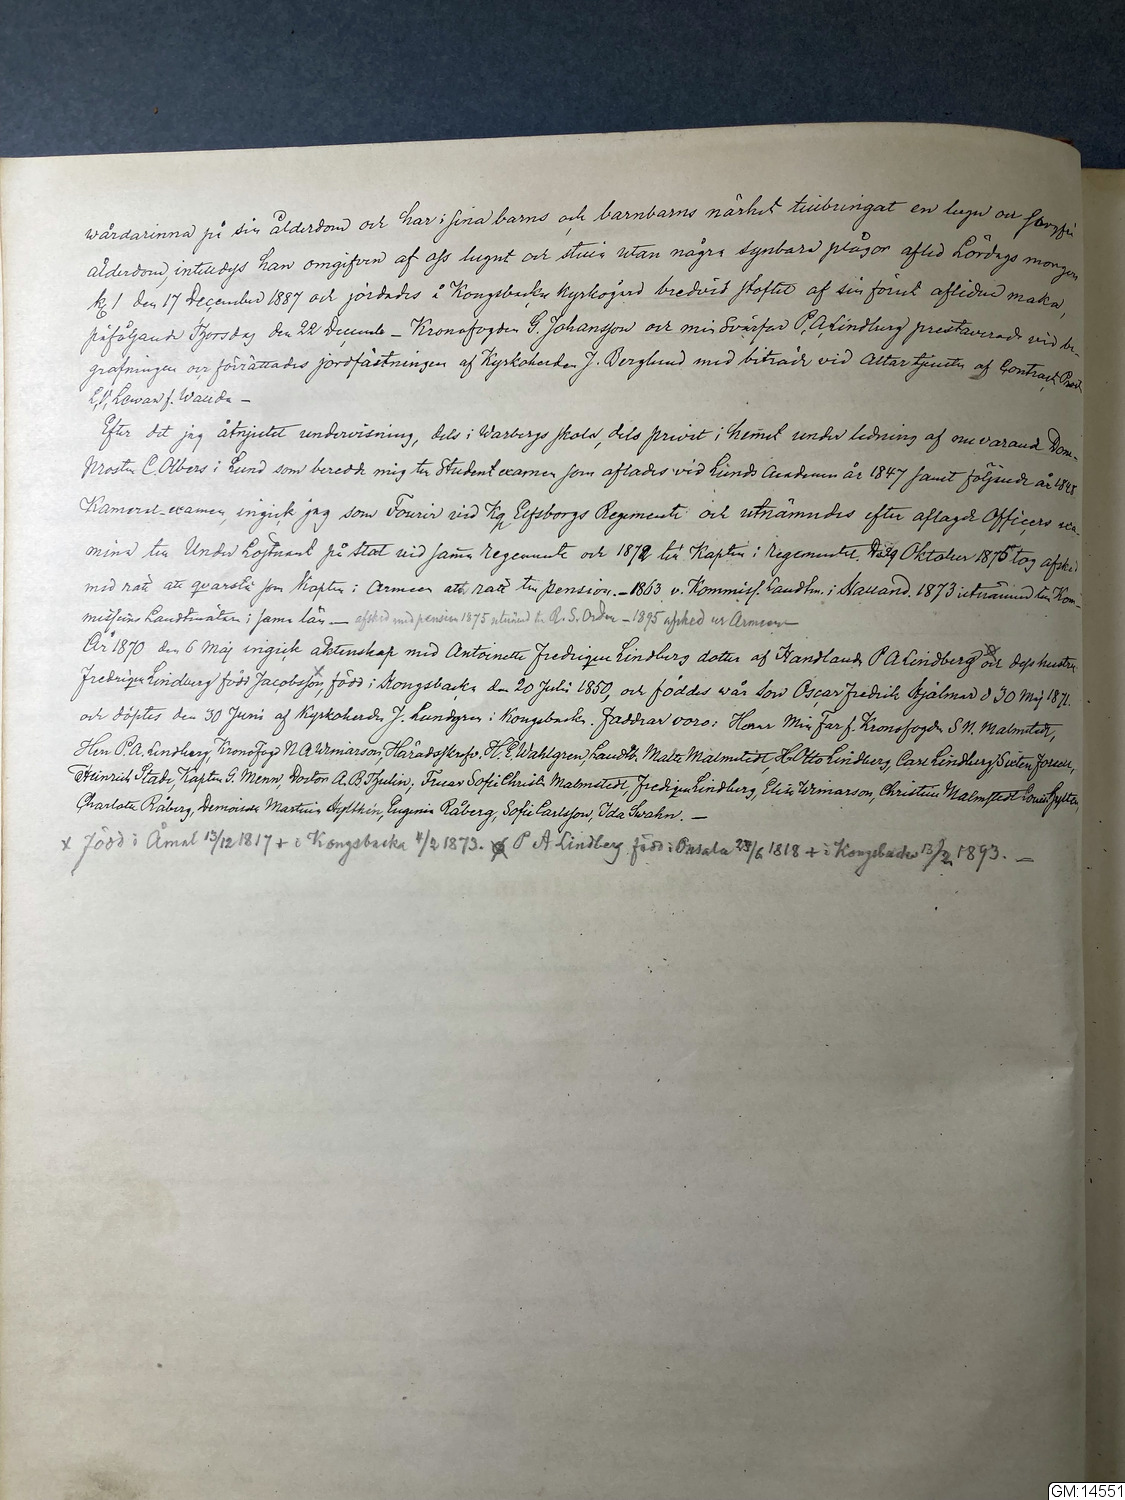 wårdarinna på sin ålderdom och har i sina barns och barnbarns närhet tillbringat en lugn och sorgfri
ålderdom, intilldess han omgifven af oss lugnt och stilla utan några synbara plågor afled Lördags morgon
kl 1 den 17 December 1887 och jordades å Kongsbacka Kyrkogård bredvid stoftet af sin förut aflidna maka,
påföljande Thorsdag den 22 December – Kronofogden G. Johansson och min Svärfar P. A. Lindberg prestaverade vid be-
grafningen och förrättades jordfästningen af Kyrkoherden J. Berglund med biträde vid Altartjensten af Contract Prost
Lewan f. Wallda –
Efter det jag åtnjutit undervisning, dels i Warbergs skola, dels privat i hemmet under ledning af nu varande Dom-
prosten C. Olbers i Lund som beredde mig till Studentexamen som aflades vid Lunds Academi år 1847 samt följande år 1848
Kameral-examen ingick jag som Fourir vid Kgl Elfsborgs Regemente och utnämndes efter aflagde Officers exa-
mina till Under Löjtnant på stat vid samma regemente och 1872 till Kapten i regementet. Den 29 Oktober 1875 tog afsked
med rätt att qvarstå som Kapten i Armeen att rätt till pension. – 1863 v. Kommiss. Landtm. i Halland. 1873 utnämnd till Kom-
missions Landtmätare i samma län – afsked med pension 1875 utnämd t. R. S. Orden – 1895 afsked ur Armeen –
År 1870 den 6 Maj ingick äktenskap med Antoinette Fredrique Lindberg dotter af Handlanden P A Lindberg och dess hustru
Fredrique Lindberg född Jacobsson x, född i Kongsbacka den 20 Juli 1850, och föddes wår son Oscar Fredrik Hjalmar d 30 Maj 1871.
och döptes den 30 Juni af Kyrkoherden J. Lundgren i Kongsbacka. Faddrar voro: Herrar Min Far f. Kronofogden S. N. Malmstedt,
Herr P. A. Lindberg, Kronofogd N. A. Wrmarson, Häradsskrifv. H. E. Wahlgren, Landtb. Malte Malmstedt, H. Otto Lindberg, Carl Lindberg, Sixten
Heinrich Stade, Kapten G. Menn, Doctor A. B. Thulin; Fruar Sofi Christi Malmstedt, Fredrique Lindberg, Elise Wrmarson, Christine Malmstedt, Hylten,
Charlotte Råberg, Demoiselle Martina Hylthén, Eugenia Råberg, Sofie Carlsson, Ida Swahn. –
x Född i Åmål 13/12 1817 + i Kongsbacka 4/2 1873. P A Lindberg född i Onsala 23/6 1818 + i Kongsbacka 13/2 1893. –
GM:14551